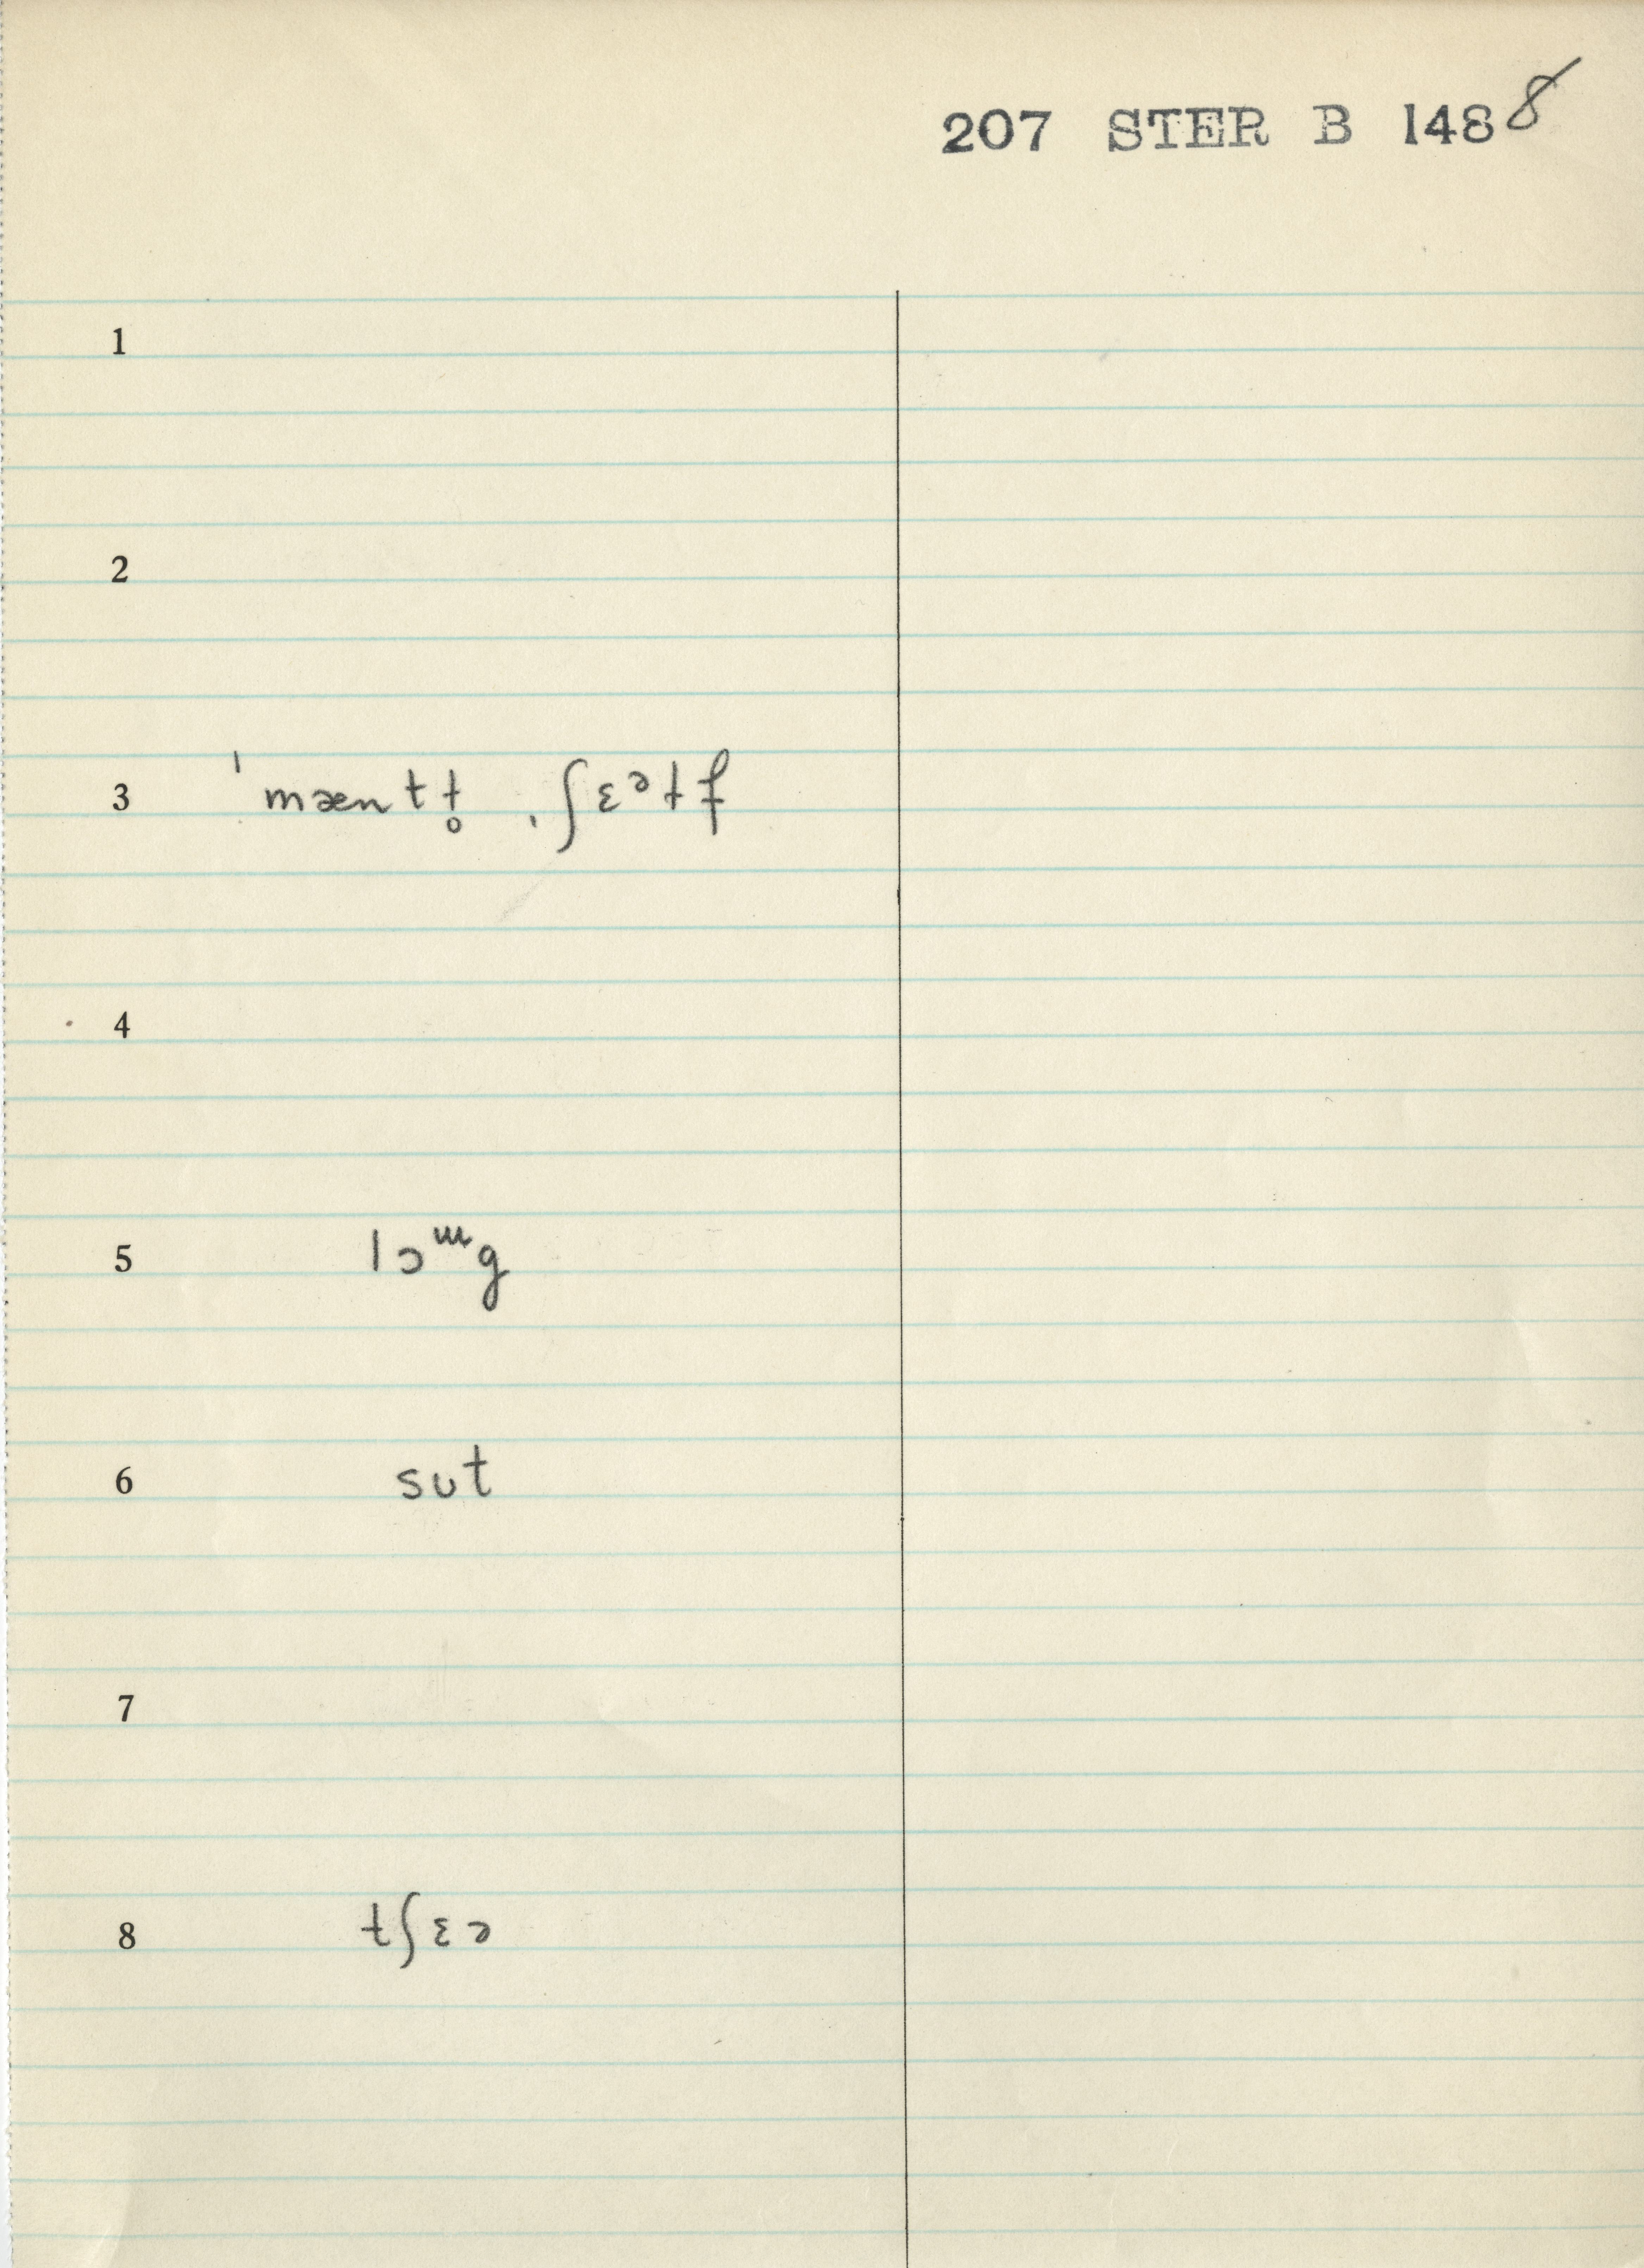 207 STER B 148 8
1
2
3 ˈmæntɫ̥ ˌʃɛᵊɫf
4
5 lɔᵚg
6 sᴜt
7
8 tʃɛə